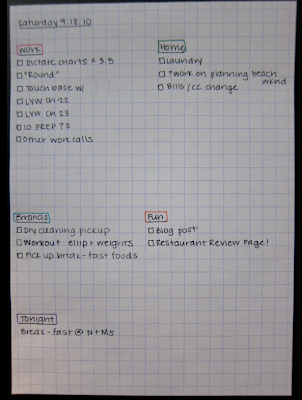 Saturday 9.18.10
Work
Dictate charts x 3.5
"Round"
Touch base w/
LYW ch 22
LYW ch 23
10 PREP ?s
Other work calls
Home
Laundry
? work on planning beach
wknd
Bills/cc change
Errands
Dry cleaning pickup
Workout: ellip + weights
Pick up break-fast foods
Fun
Blog post
Restaurant Review Page!
Tonight
Break-fast @ N+M's